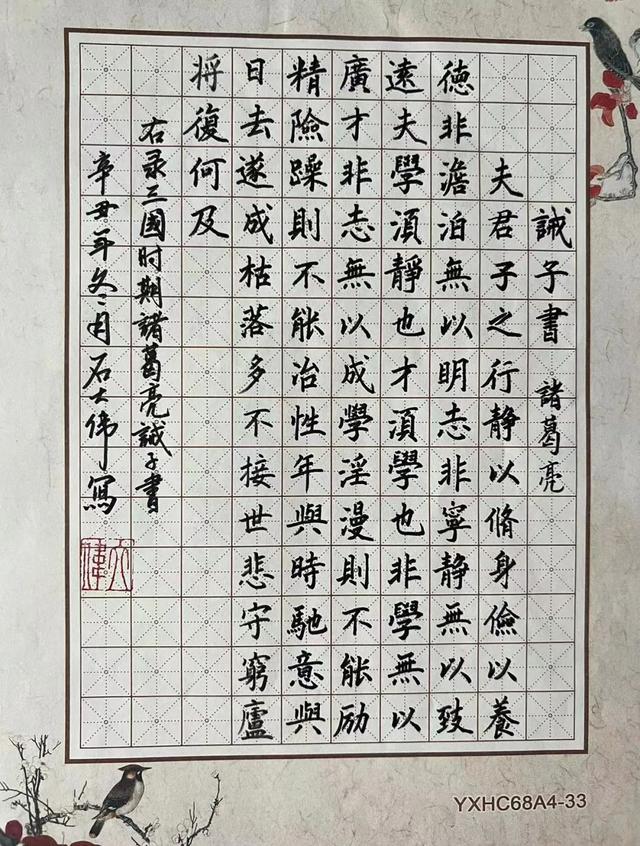 誡子書 諸葛亮
夫君子之行静以脩身儉以養
德非澹泊無以明志非寧静無以致
遠夫學須静也才須學也非學無以
廣才非志無以成學淫漫則不能励
精險躁則不能冶性年與時馳意與
日去遂成枯落多不接世悲守窮廬
將復何及
右录三國时期諸葛亮誡子書
辛丑年冬二月石大伟寫
大偉
YXHC68A4-33